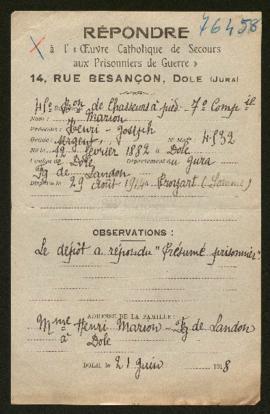 76458
RÉPONDRE
à l' « Œuvre Catholique de Secours
aux Prisonniers de Guerre »
14, RUE BESANÇON, DOLE (JURA)
45e Bon de Chasseurs à pied - 7e Compie
Nom : Marion
Prénoms : Henri - Joseph
Grade : Sergent N° Mle 4832
Né le 12 février 1882 à Dole
Dole Département du Jura
Fg de Landon
Disparu le 29 Août 1914 Proyart (Somme)
OBSERVATIONS :
Le dépôt a répondu "Présumé prisonnier"
ADRESSE DE LA FAMILLE :
Mme Henri Marion - Fg de Landon
à Dole
DOLE, le 21 Juin 1918